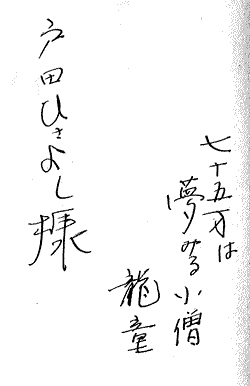 七十五才は
夢みる小僧
龍童
戸田ひさよし様